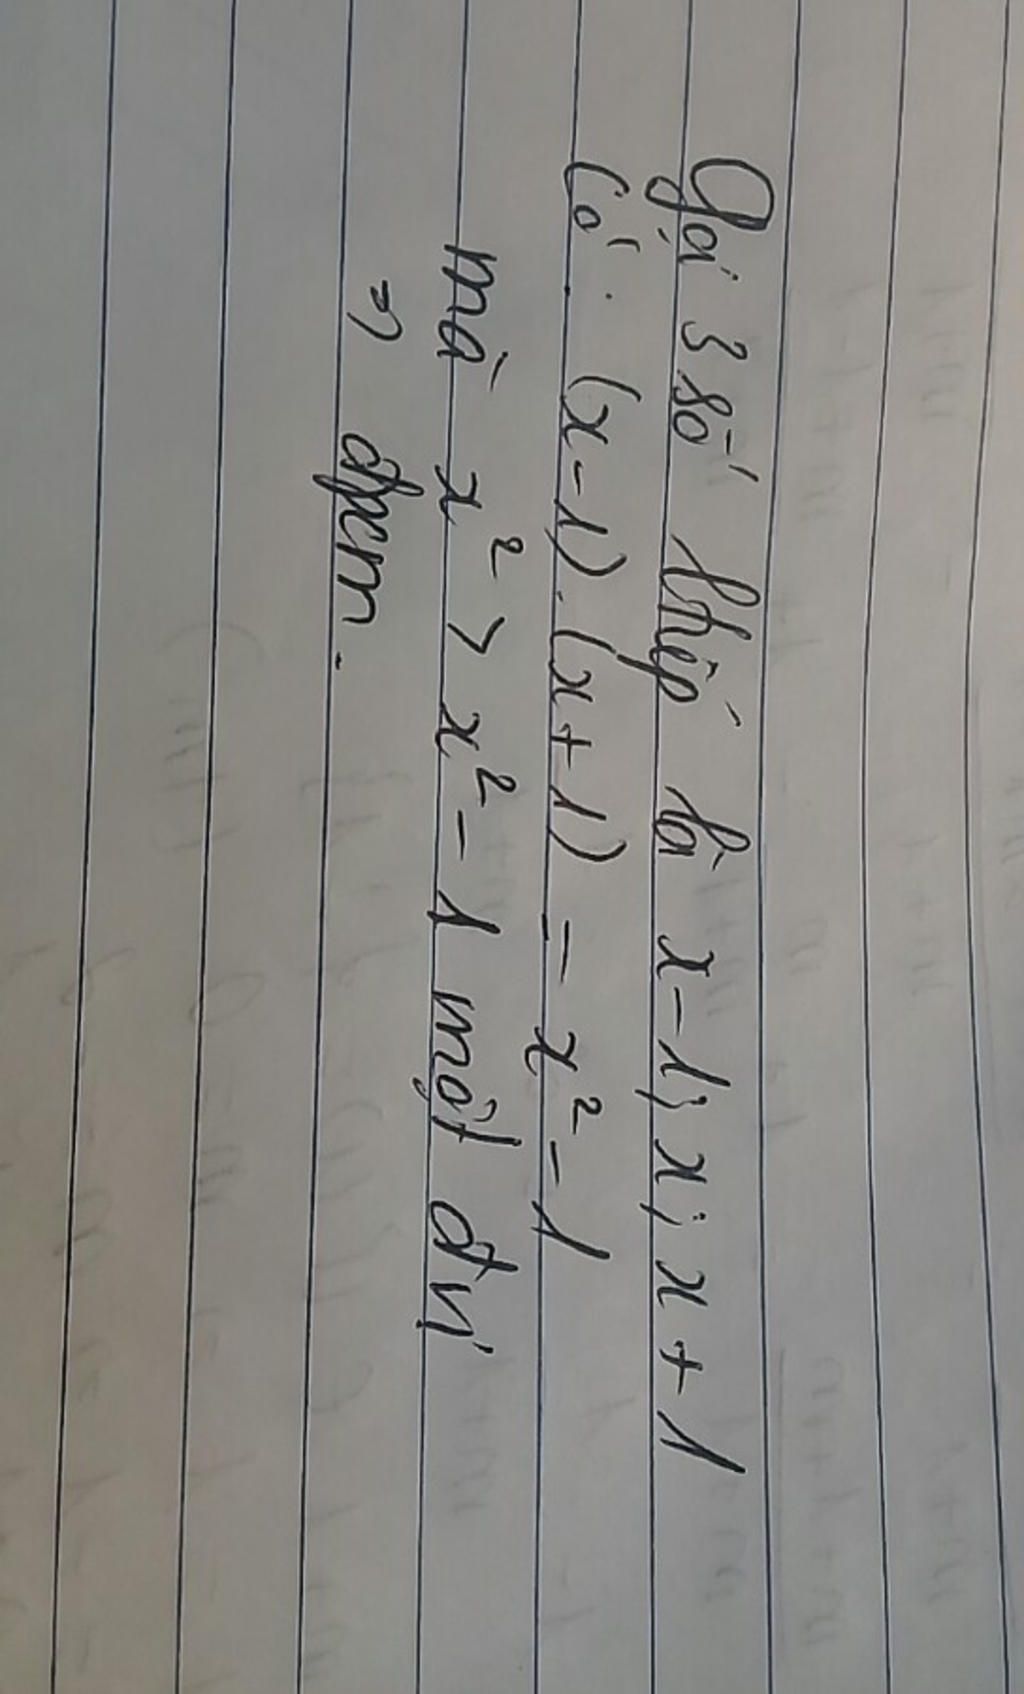 Gọi 3 số' tiếp là x-1; x; x+1
Có: (x-1).(x+1) = x²-1
mà x² > x²-1 một đvị
=> đpcm.